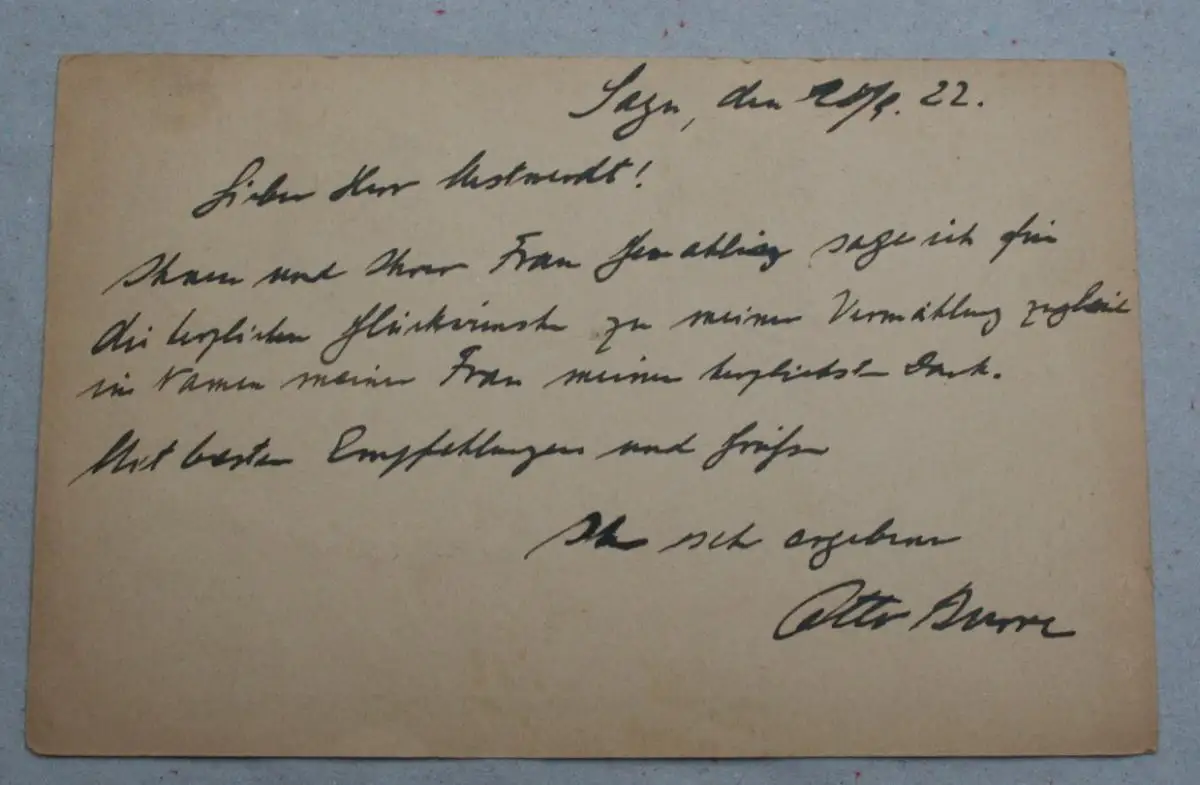 den 22.
Lieber Herr Mestwerdt!
Ihnen und Ihrer Frau Gemahlin sage ich für
die herzlichen Glückwünsche zu meiner Vermählung zugleich
im Namen meiner Frau meinen herzlichsten Dank.
Mit besten Empfehlungen und Grüßen
Ihr sehr ergebener
Otto Burre